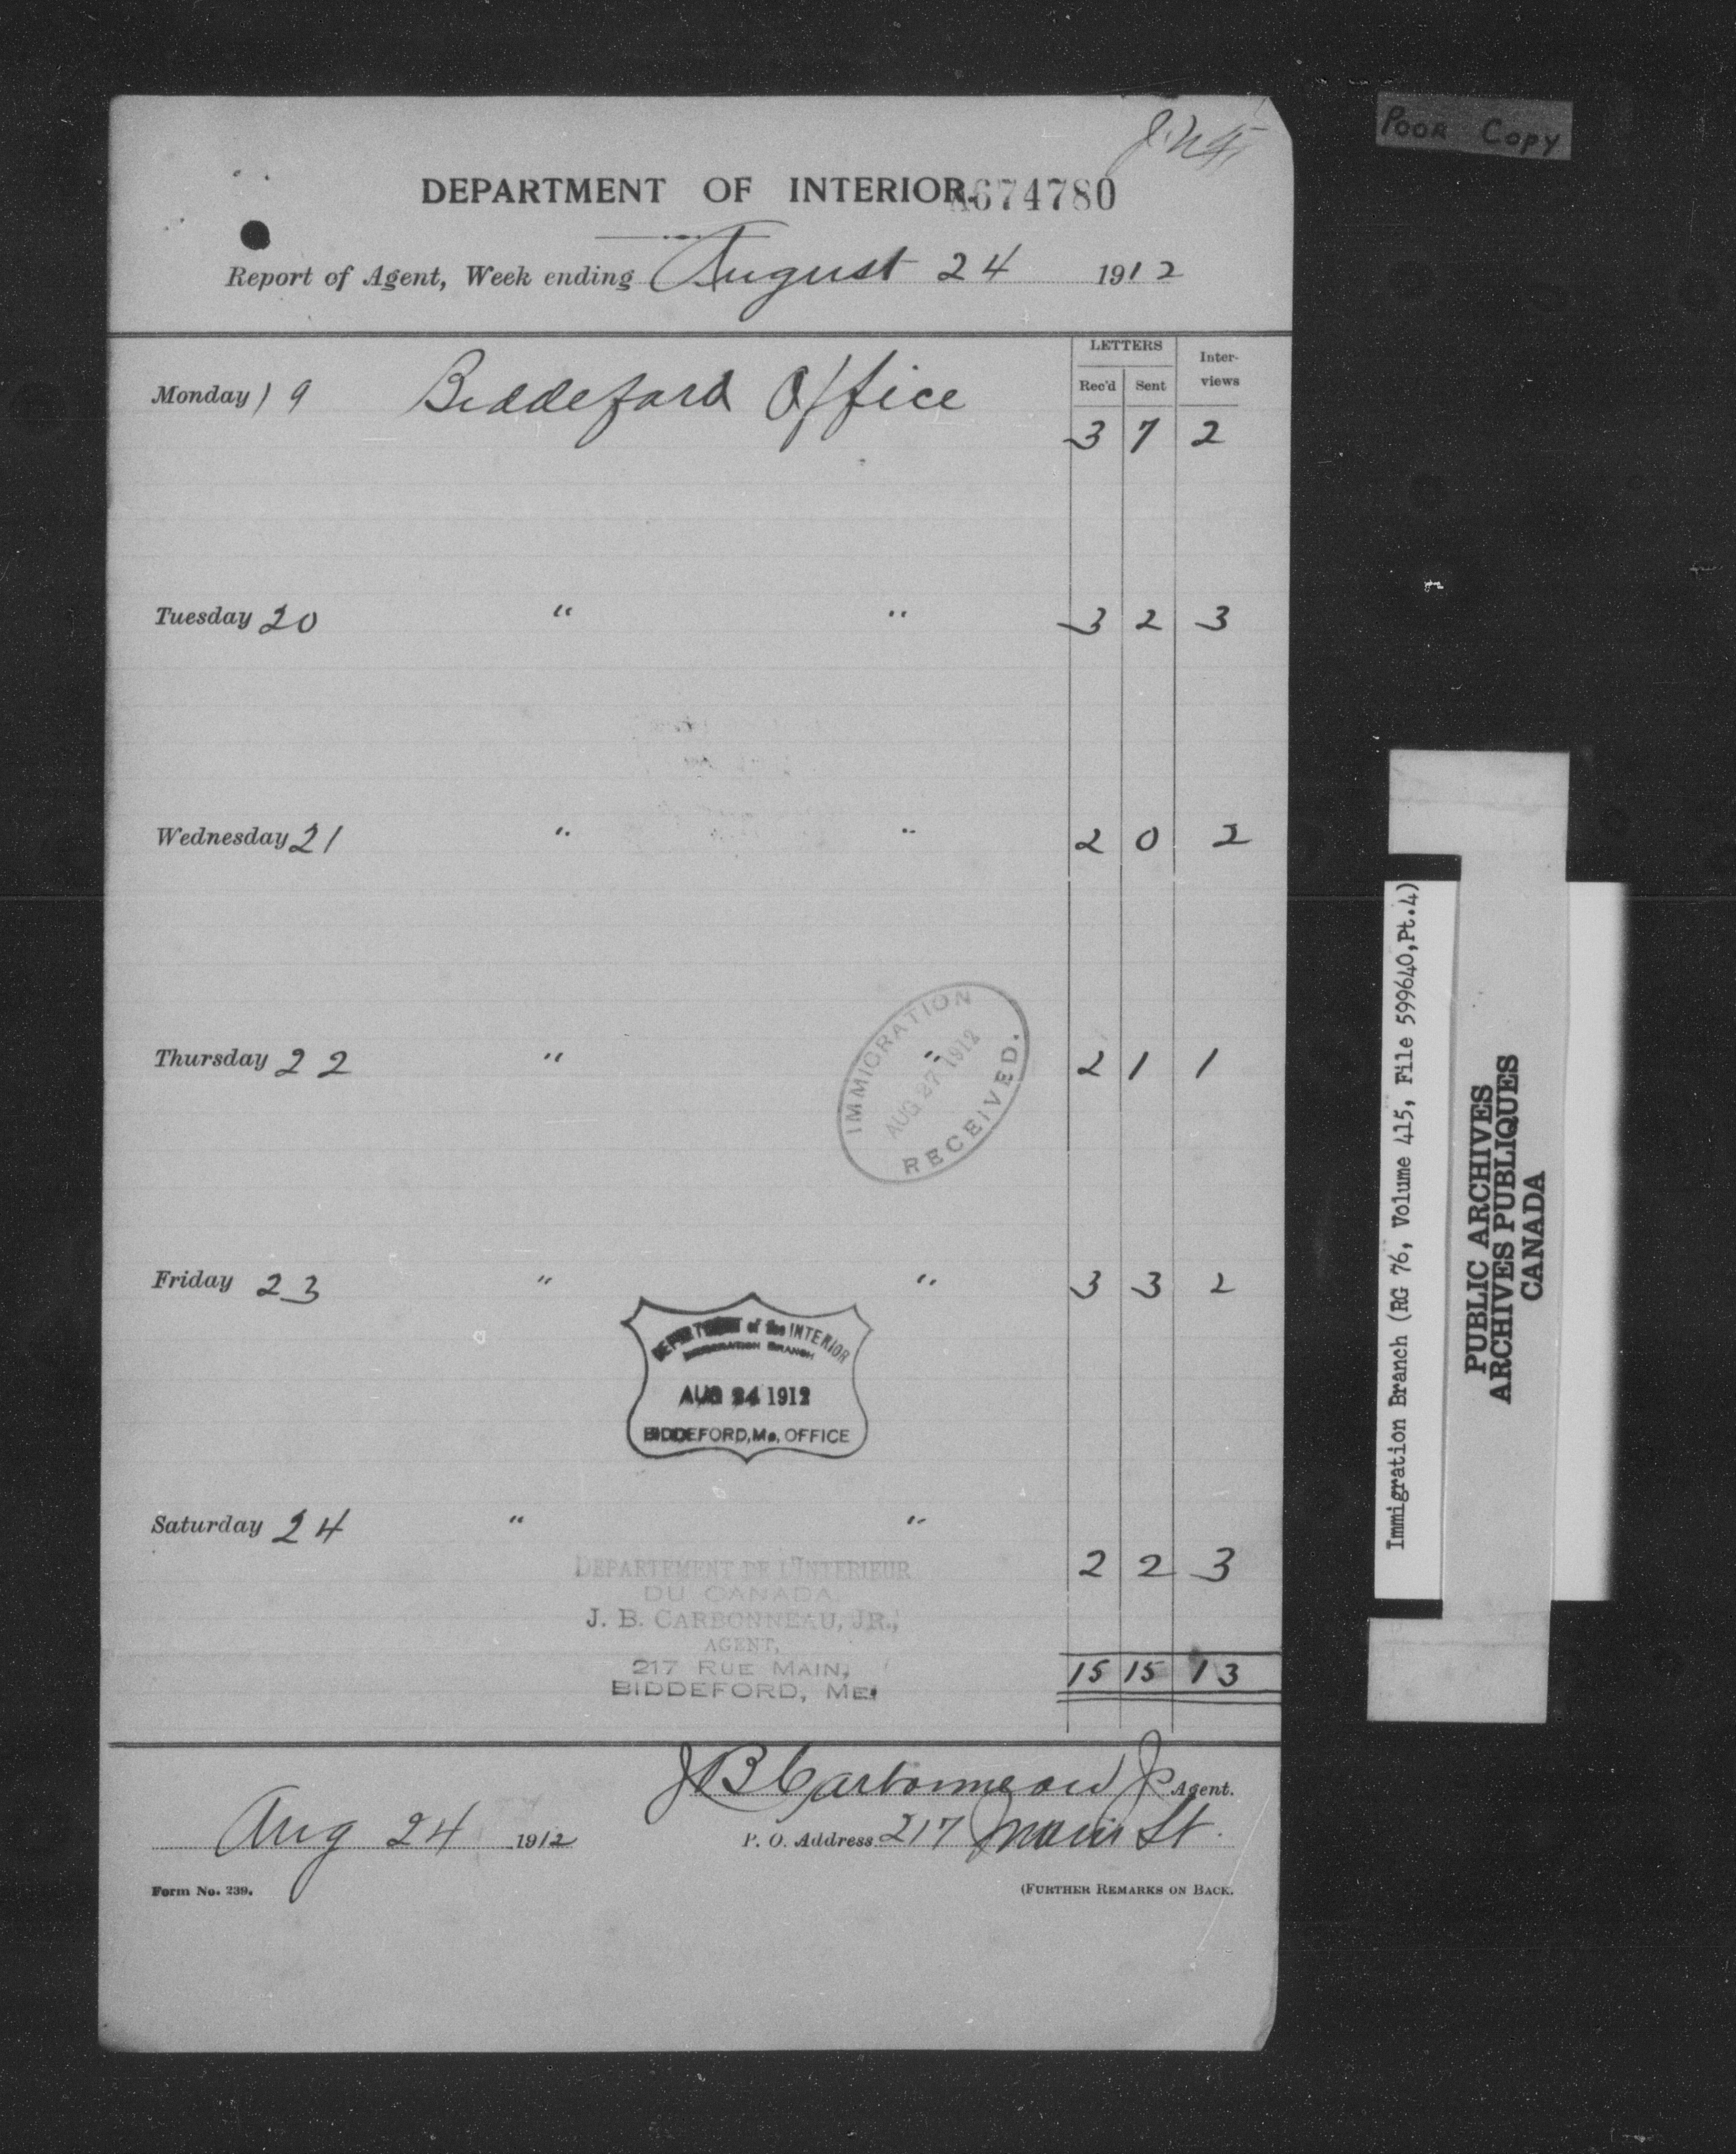 POOR COPY
DEPARTMENT OF INTERIOR.
674780
Report of Agent, Week ending August 24 1912
LETTERS
Inter-
views
Rec'd Sent
Monday 19 Biddeford Office
3 7 2
Tuesday 20 " " 3 2 3
Wednesday 21 " " 2 0 2
Thursday 22 " " 2 1 1
IMMIGRATION
AUG 27 1912
RECEIVED.
Friday 23 " " 3 3 2
DEPARTMENT of the INTERIOR
IMMIGRATION BRANCH
AUG 24 1912
BIDDEFORD, Me. OFFICE
Saturday 24 " "
2 2 3
DEPARTEMENT DE L'INTERIEUR
DU CANADA.
J. B. CARBONNEAU, JR.,
AGENT,
217 RUE MAIN,
BIDDEFORD, ME.
15 15 13
J B Carbonneau Jr Agent.
Aug 24 1912
P. O. Address 217 Main St.
Form No. 239.
(FURTHER REMARKS ON BACK.
Immigration Branch (RG 76, Volume 415, File 599640, Pt.4)
PUBLIC ARCHIVES
ARCHIVES PUBLIQUES
CANADA